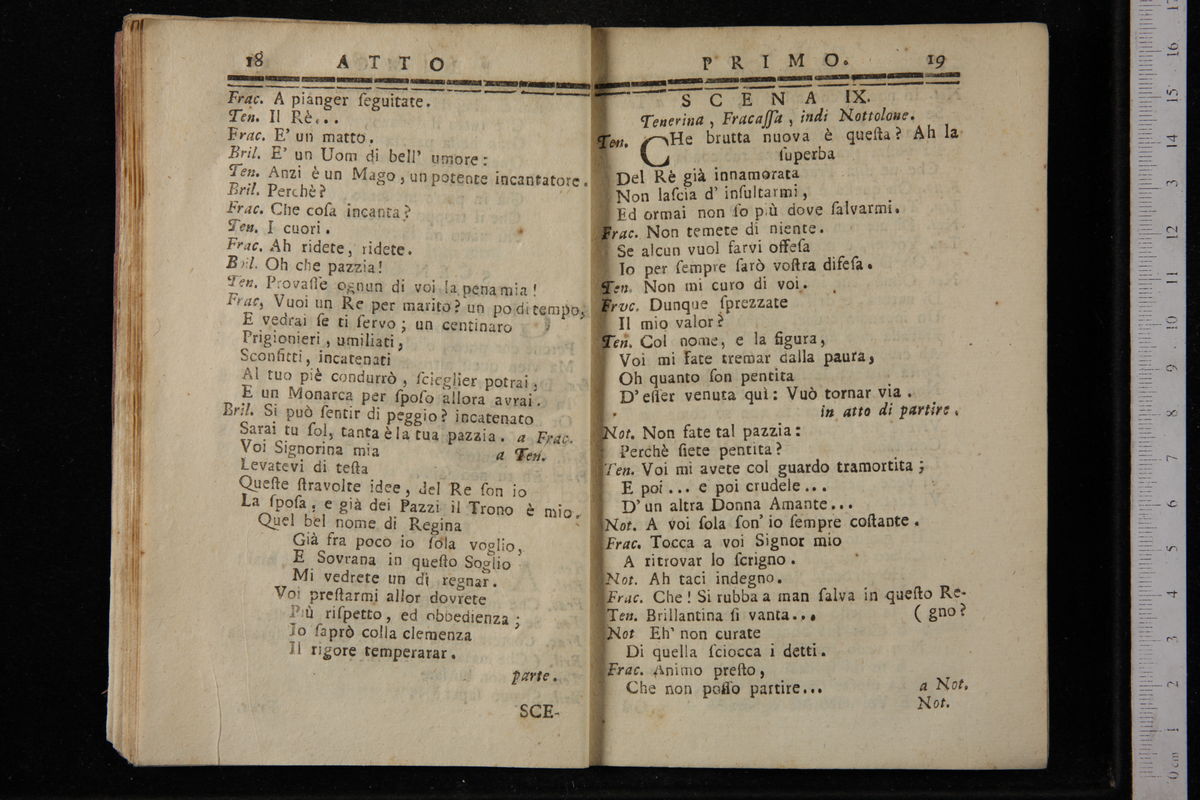 18 ATTO
Frac. A pianger ſeguitate.
Ten. Il Rè...
Frac. E' un matto.
Bril. E' un Uom di bell' umore:
Ten. Anzi è un Mago, un potente incantatore.
Bril. Perchè?
Frac. Che coſa incanta?
Ten. I cuori.
Frac. Ah ridete, ridete.
Bril. Oh che pazzia!
Ten. Provaſſe ognun di voi la pena mia!
Frac, Vuoi un Re per marito? un po di tempo,
E vedrai ſe ti ſervo; un centinaro
Prigionieri, umiliati,
Sconfitti, incatenati
Al tuo piè condurrò, ſcieglier potrai,
E un Monarca per ſpoſo allora avrai.
Bril. Si può ſentir di peggio? incatenato
Sarai tu ſol, tanta è la tua pazzia. a Frac.
Voi Signorina mia a Ten.
Levatevi di teſta
Queſte ſtravolte idee, del Re ſon io
La ſpoſa, e già dei Pazzi il Trono è mio.
Quel bel nome di Regina
Già fra poco io ſola voglio,
E Sovrana in queſto Soglio
Mi vedrete un dì regnar.
Voi preſtarmi allor dovrete
Più riſpetto, ed obbedienza;
Io ſaprò colla clemenza
Il rigore temperarar.
parte.
SCE-
PRIMO. 19
SCENA IX.
Tenerina, Fracaſſa, indi Nottolone.
Ten. CHe brutta nuova è queſta? Ah la
ſuperba
Del Rè già innamorata
Non laſcia d' inſultarmi,
Ed ormai non ſo più dove ſalvarmi.
Frac. Non temete di niente.
Se alcun vuol farvi offeſa
Io per ſempre ſarò voſtra difeſa.
Ten. Non mi curo di voi.
Fruc. Dunque ſprezzate
Il mio valor?
Ten. Col nome, e la figura,
Voi mi fate tremar dalla paura,
Oh quanto ſon pentita
D' eſſer venuta quì: Vuò tornar via.
in atto di partire.
Not. Non fate tal pazzia:
Perchè ſiete pentita?
Ten. Voi mi avete col guardo tramortita;
E poi... e poi crudele...
D' un altra Donna Amante...
Not. A voi ſola ſon' io ſempre coſtante.
Frac. Tocca a voi Signor mio
A ritrovar lo ſcrigno.
Not. Ah taci indegno.
Frac. Che! Si rubba a man ſalva in queſto Re-
Ten. Brillantina ſi vanta... (gno?
Not Eh' non curate
Di quella ſciocca i detti.
Frac. Animo preſto,
Che non poſſo partire... a Not.
Not.